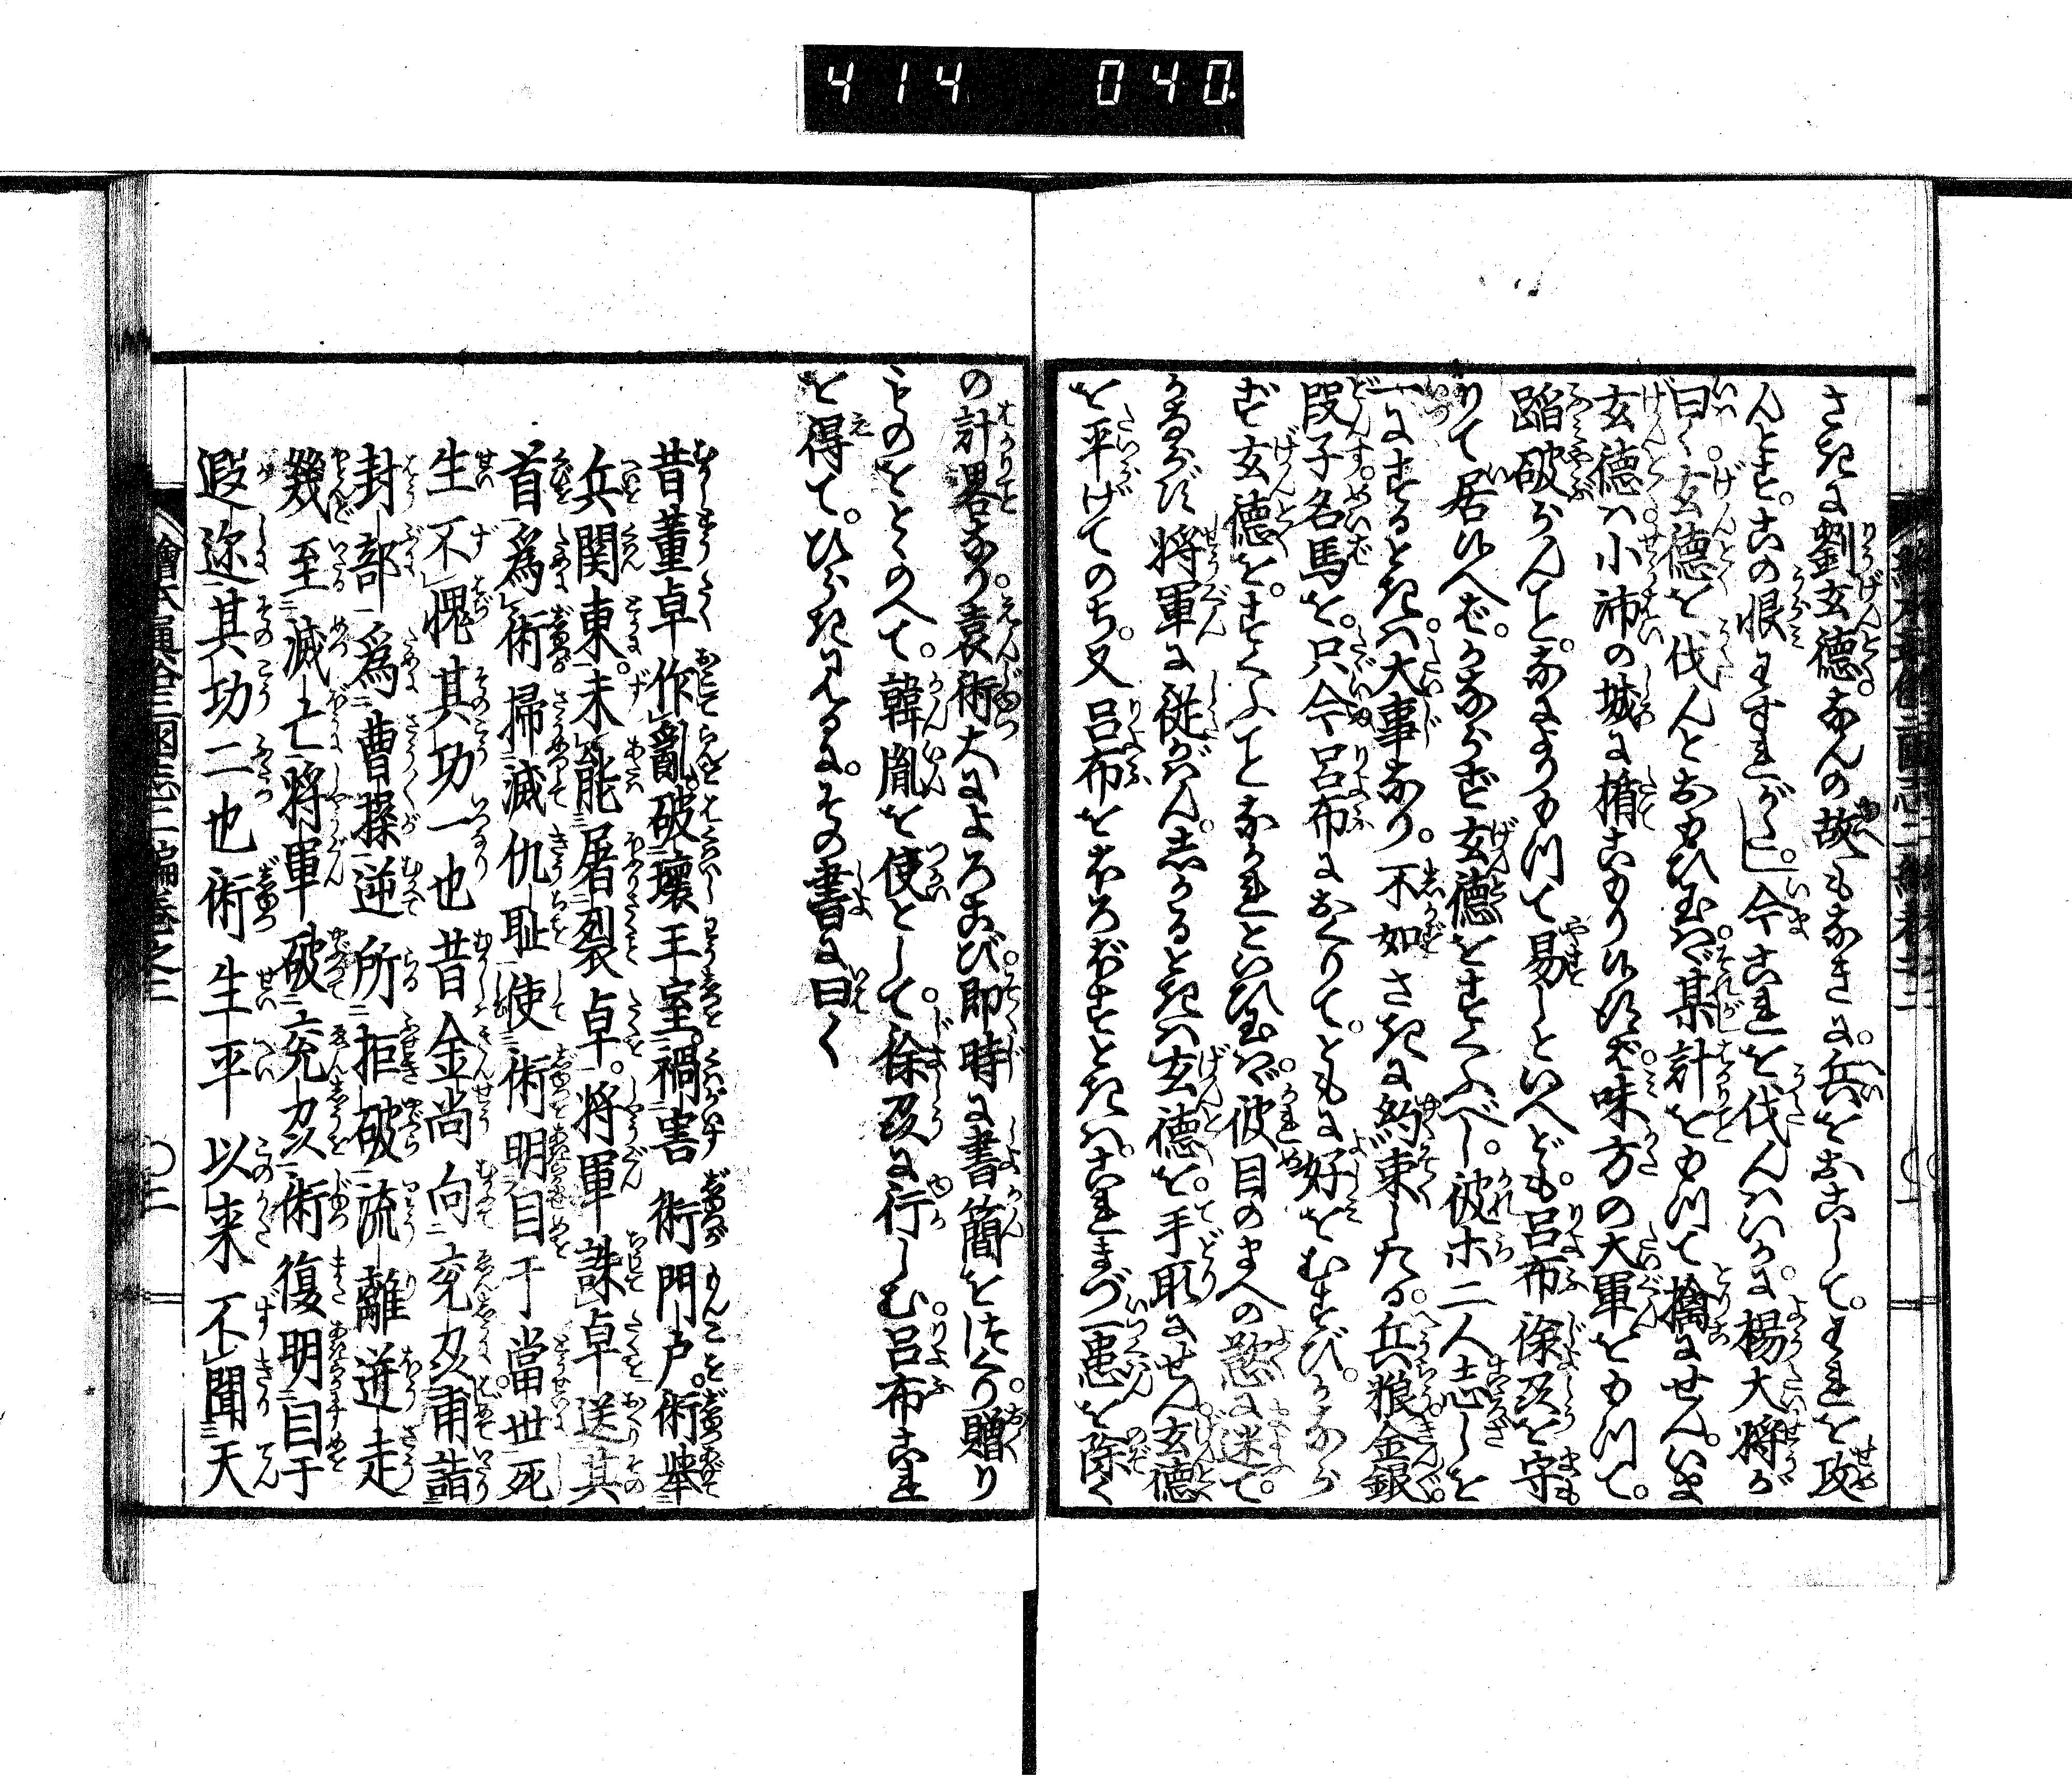 414 040
さきに劉玄德なんの故もなきに。兵をおこして。われを攻
んとす。この恨わすれがたし。今これを伐んハいかに楊大将が
曰く。玄德を伐んとおもひ玉ハヾ某計をもつて擒にせん。いま
玄德ハ小沛の城に楯こもり候へば。味方の大軍をもつて。
蹈破らんと。なによりもつて易しといへども。呂布徐州を守
りて居候へば。かならず玄德をすくふべし。彼ホ二人志しを
一にするときハ。大事なり。不如さきに約束したる。兵粮金銀。
段子名馬を。只今呂布におくりて。ともに好をむすび。かなら
ず玄德を。すくふことなかれといひ玉ハヾ。彼目のまへの慾に迷て。
かならず将軍に従がハん。しかるときハ玄德を。手取にせん。玄德
を平げてのち。又呂布をほろぼすときハ。これまづ一患を除く
の計畧なり。袁術大によろこび。即時に書簡をつくり。贈り
ものをとゝのへて。韓胤を使として。徐州に行しむ。呂布これ
を得て。ひらきみるに。その書に曰く
昔董卓作亂。破壞王室。禍害術門戸。術擧
兵関東。未能屠裂卓。将軍誅卓送其
首。爲術掃滅仇耻。使術明目于當世死
生不愧。其功一也昔金尚向兗刕甫詣
封部。爲曹操逆所拒破。流離迸走
幾至滅亡。将軍破兗刕。術復明目于
遐迩。其功二也術生平以来不聞天
繪本通俗三國志二編卷之三
〇二